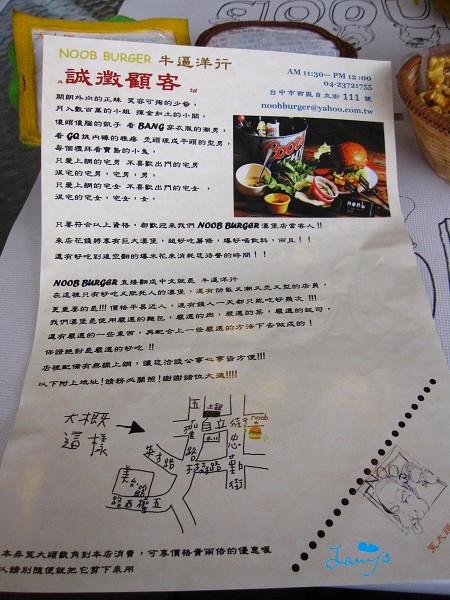 NOOB BURGER 牛逼洋行
誠徵顧客
AM 11:30~ PM 12 :00
04-23721755
台中市西區自立街 111 號
noobburger@yahoo.com.tw
開朗外向的正妹 笑容可掬的少爺,
月入數百萬的小姐 揮金如土的小開,
傻頭傻腦的凱子 看 BANG 穿衣服的潮男,
看 GQ 燒肉褲的雅痞 禿頭理成平頭的型男,
每個禮拜看寶島的小鬼,
只愛上網的宅男 不喜歡出門的宅男
沒宅的宅男,宅男,男,
只愛上網的宅女 不喜歡出門的宅女 ,
沒宅的宅女,宅女,女,
只要符合以上資格,都歡迎來我們 NOOB BURGER 漢堡店當客人!!
來店花錢將享有巨大漢堡,超好吃薯條,爆好喝飲料,而且!!
還有好吃到這空翻的爆米花來消耗您洛餐的時間!!
NOOB BURGER 直接翻成中文就是 牛逼洋行
在這裡只有好吃又肥死人的漢堡,還有帥氣又潮又克又型的店員,
更重要的是!!!價格平易近人,連有錢人一天都只能吃好幾次 !!!
我們漢堡是使用嚴選的麵包,嚴選的肉,嚴選的菜,嚴選的起司,
還有嚴選的一些東西,再配合上一些嚴選的方法下去做成的!
保證絕對是嚴選的好吃 !!
店裡配備有無線上網,讓您洽談公事心事皆方便!!!
以下附上地址!請務必關照!謝謝諸位大溫!!!!
大概
這樣
五權路
土銀
自立街
noob
忠勤街
英才路
林森路
美術館
五權西路
本券寬大頭截角到本店消費,可享價格貴兩倍的優惠喔
以請別隨便就把它剪下來用
寬大頭